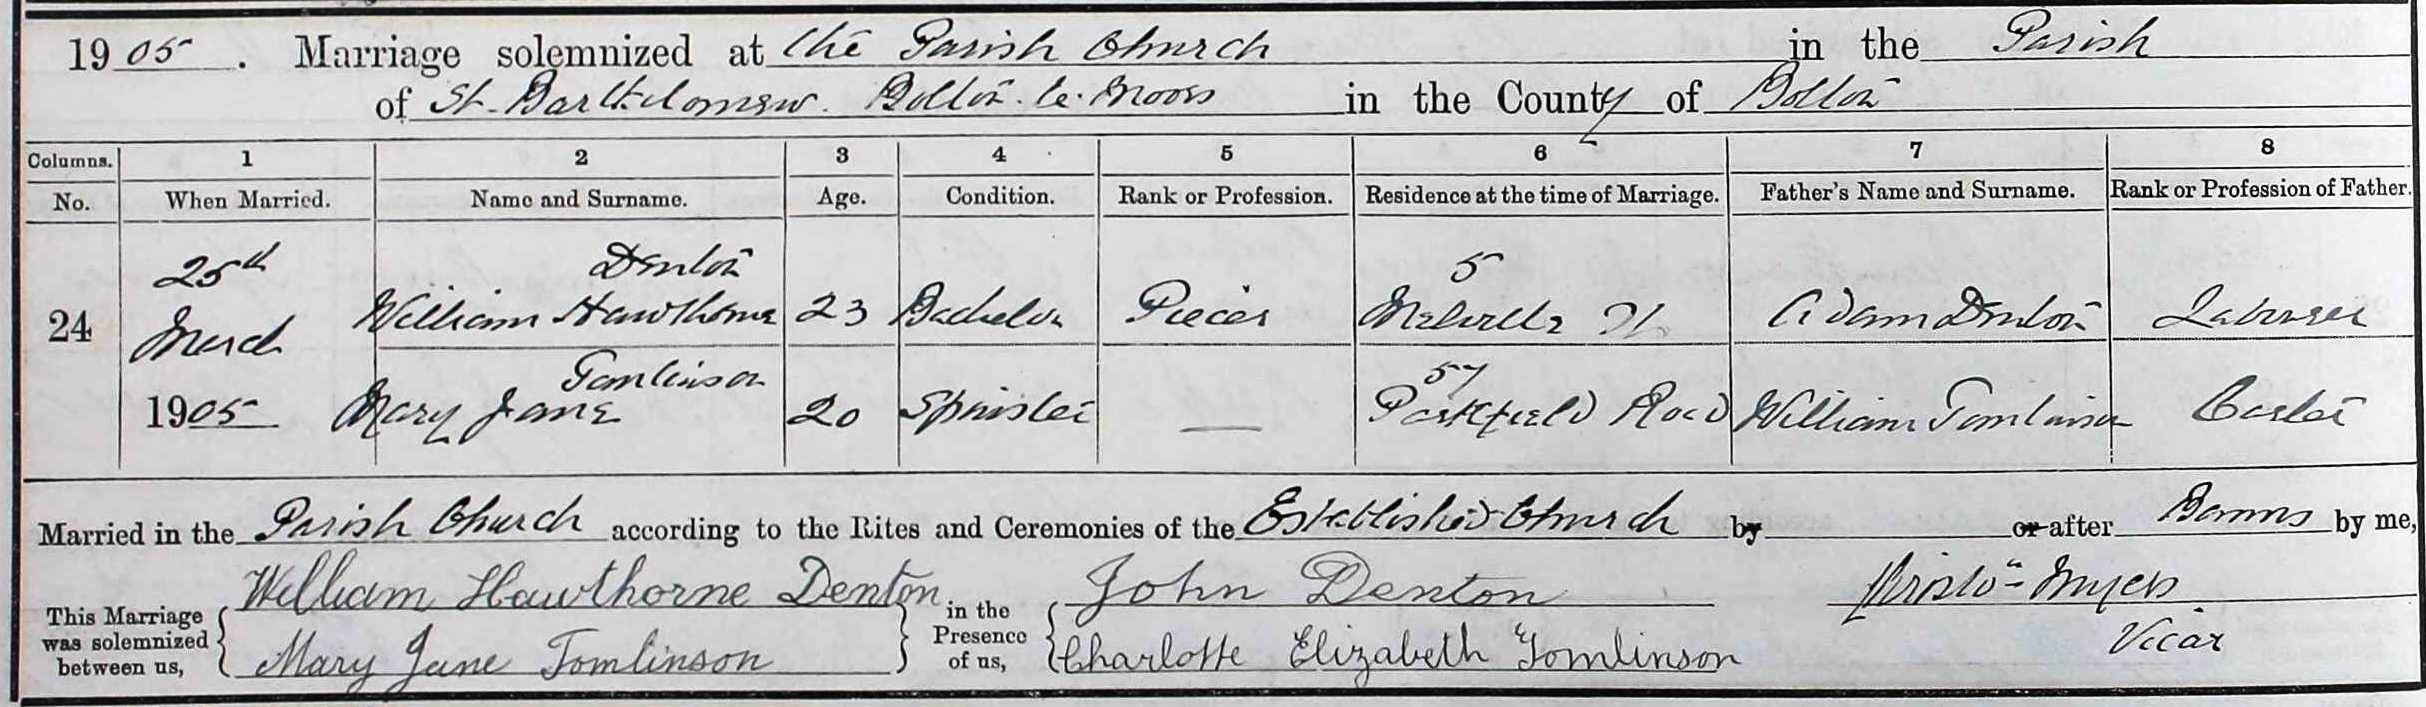 1905. Marriage solemnized at the Parish Church in the Parish
of St. Bartholomew. Bolton. le. Moors in the County of Bolton
Columns. 1 2 3 4 5 6 7 8
No. When Married. Name and Surname. Age. Condition. Rank or Profession. Residence at the time of Marriage. Father's Name and Surname. Rank or Profession of Father.
25th Denton 5
24 March William Hawthorne 23 Bachelor Piecer Melville St. Adam Denton Labourer
Tomlinson 57
1905 Mary Jane 20 Spinster — Parkfield Road William Tomlinson Carter
Married in the Parish Church according to the Rites and Ceremonies of the Established Church by or after Banns by me,
This Marriage was solemnized between us, William Hawthorne Denton in the Presence of us, John Denton Myers
Mary Jane Tomlinson Charlotte Elizabeth Tomlinson Vicar